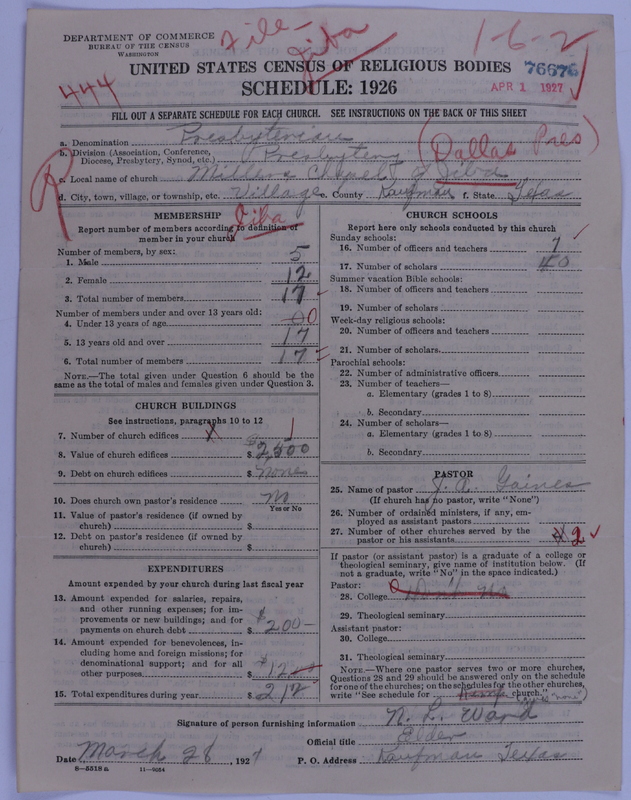 File Jiba
1-6-2
DEPARTMENT OF COMMERCE
BUREAU OF THE CENSUS
WASHINGTON
UNITED STATES CENSUS OF RELIGIOUS BODIES
76676
SCHEDULE: 1926
APR 1 1927
444
FILL OUT A SEPARATE SCHEDULE FOR EACH CHURCH. SEE INSTRUCTIONS ON THE BACK OF THIS SHEET
a. Denomination Presbyterian
b. Division (Association, Conference, Diocese, Presbytery, Synod, etc.) Presbytery (Dallas Pres)
c. Local name of church Chapel Jiba
d. City, town, village, or township, etc. Village e. County Kaufman f. State Texas
Jiba
MEMBERSHIP
Report number of members according to definition of member in your church
Number of members, by sex:
1. Male 5
2. Female 12
3. Total number of members 17
Number of members under and over 13 years old:
4. Under 13 years of age 0
5. 13 years old and over 17
6. Total number of members 17
NOTE.—The total given under Question 6 should be
same as the total of males and females given under Question 3.
CHURCH BUILDINGS
See instructions, paragraphs 10 to 12
7. Number of church edifices 1
8. Value of church edifices $ 2,500
9. Debt on church edifices $ None
10. Does church own pastor's residence No
Yes or No
11. Value of pastor's residence (if owned by
church) $
12. Debt on pastor's residence (if owned by
church) $
EXPENDITURES
Amount expended by your church during last fiscal year
13. Amount expended for salaries, repairs,
and other running expenses; for im-
provements or new buildings; and for
payments on church debt $ 200—
14. Amount expended for benevolences, in-
cluding home and foreign missions; for
denominational support; and for all
other purposes $ 12
15. Total expenditures during year $ 212
CHURCH SCHOOLS
Report here only schools conducted by this church
Sunday schools:
16. Number of officers and teachers 7
17. Number of scholars
Summer vacation Bible schools:
18. Number of officers and teachers
19. Number of scholars
Week-day religious schools:
20. Number of officers and teachers
21. Number of scholars
Parochial schools:
22. Number of administrative officers
23. Number of teachers—
a. Elementary (grades 1 to 8)
b. Secondary
24. Number of scholars—
a. Elementary (grades 1 to 8)
b. Secondary
PASTOR
25. Name of pastor Gaines
(If church has no pastor, write "None")
26. Number of ordained ministers, if any, em-
ployed as assistant pastors
27. Number of other churches served by the
pastor or his assistants 2
If pastor (or assistant pastor) is a graduate of a college or
theological seminary, give name of institution below. (If
not a graduate, write "No" in the space indicated.)
Pastor:
28. College
29. Theological seminary
Assistant pastor:
30. College
31. Theological seminary
NOTE.—Where one pastor serves two or more churches,
Questions 28 and 29 should be answered only on the schedule
for one of the churches; on the schedules for the other churches,
write "See schedule for church."
Signature of person furnishing information N. L. Ward
Official title Elder
Date March 28, 1927 P. O. Address Kaufman Texas
8—5518a 11—9054